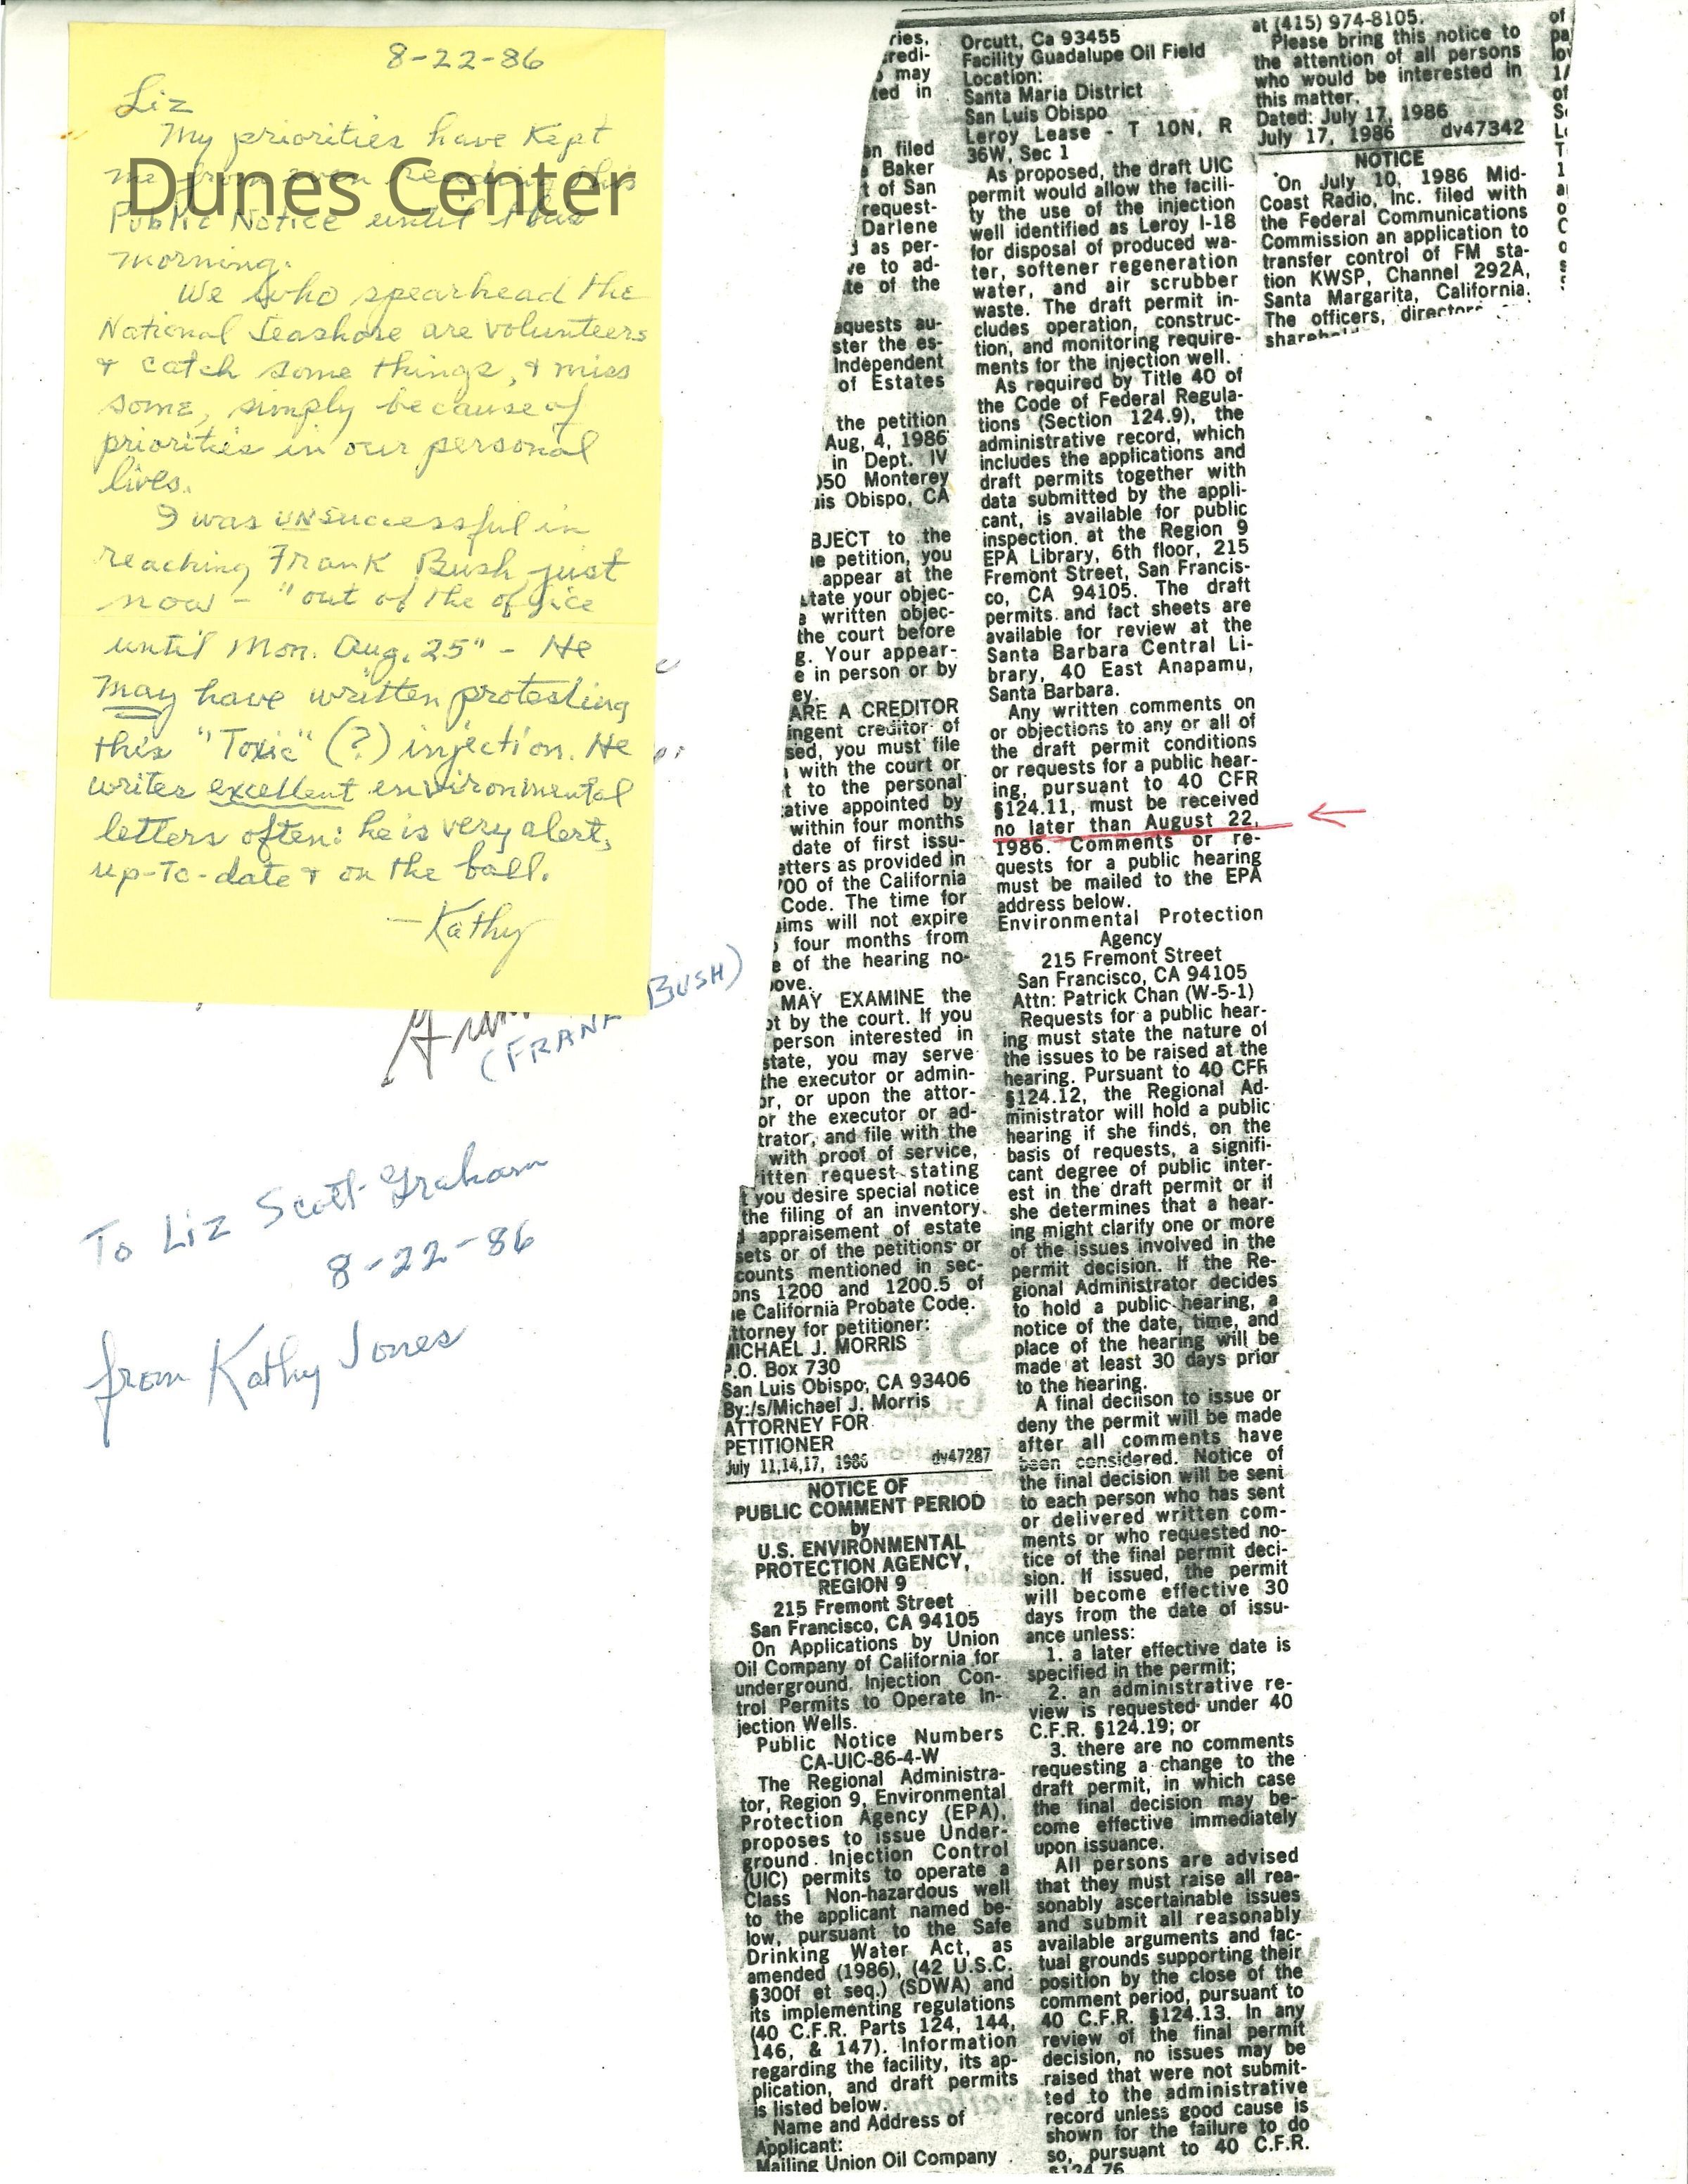 8-22-86
Liz
My priorities have kept
me from even reading this
Dunes Center
Public Notice until this
morning.
We who spearhead the
National Seashore are volunteers
& catch some things, & miss
some, simply because of
priorities in our personal
lives.
I was UNsuccessful in
reaching Frank Bush just
now - "out of the office
until Mon. Aug. 25" - He
may have written protesting
this "Toxic" (?) injection. He
writes excellent environmental
letters often: he is very alert,
up-to-date & on the ball.
-Kathy
(FRANK BUSH)
To Liz Scott-Graham
8-22-86
from Kathy Jones
ries,
redi-
may
ted in
en filed
Baker
t of San
request-
Darlene
d as per-
ve to ad-
te of the
equests au-
ster the es-
Independent
of Estates
the petition
Aug, 4, 1986
in Dept. IV
050 Monterey
uis Obispo, CA
BJECT to the
e petition, you
appear at the
tate your objec-
written objec-
the court before
g. Your appear-
e in person or by
ey.
ARE A CREDITOR
ingent creditor of
sed, you must file
with the court or
t to the personal
ative appointed by
within four months
date of first issu-
etters as provided in
700 of the California
Code. The time for
aims will not expire
four months from
e of the hearing no-
ove.
MAY EXAMINE the
ot by the court. If you
person interested in
state, you may serve
the executor or admin-
or, or upon the attor-
or the executor or ad-
trator, and file with the
with proof of service,
ritten request stating
t you desire special notice
the filing of an inventory
d appraisement of estate
sets or of the petitions or
counts mentioned in sec-
ons 1200 and 1200.5 of
e California Probate Code.
ttorney for petitioner:
MICHAEL J. MORRIS
P.O. Box 730
San Luis Obispo, CA 93406
By:/s/Michael J. Morris
ATTORNEY FOR
PETITIONER
July 11,14,17, 1986 dv47287
NOTICE OF
PUBLIC COMMENT PERIOD
by
U.S. ENVIRONMENTAL
PROTECTION AGENCY,
REGION 9
215 Fremont Street
San Francisco, CA 94105
On Applications by Union
Oil Company of California for
underground Injection Con-
trol Permits to Operate In-
jection Wells.
Public Notice Numbers
CA-UIC-86-4-W
The Regional Administra-
tor, Region 9, Environmental
Protection Agency (EPA),
proposes to issue Under-
ground Injection Control
(UIC) permits to operate a
Class I Non-hazardous well
to the applicant named be-
low, pursuant to the Safe
Drinking Water Act, as
amended (1986), (42 U.S.C.
§300f et seq.) (SDWA) and
its implementing regulations
(40 C.F.R. Parts 124, 144,
146, & 147). Information
regarding the facility, its ap-
plication, and draft permits
is listed below.
Name and Address of
Applicant:
Mailing Union Oil Company
Orcutt, Ca 93455
Facility Guadalupe Oil Field
Location:
Santa Maria District
San Luis Obispo
Leroy Lease - T 10N, R
36W, Sec 1
As proposed, the draft UIC
permit would allow the facili-
ty the use of the injection
well identified as Leroy I-18
for disposal of produced wa-
ter, softener regeneration
water, and air scrubber
waste. The draft permit in-
cludes operation, construc-
tion, and monitoring require-
ments for the injection well.
As required by Title 40 of
the Code of Federal Regula-
tions (Section 124.9), the
administrative record, which
includes the applications and
draft permits together with
data submitted by the appli-
cant, is available for public
inspection at the Region 9
EPA Library, 6th floor, 215
Fremont Street, San Francis-
co, CA 94105. The draft
permits and fact sheets are
available for review at the
Santa Barbara Central Li-
brary, 40 East Anapamu,
Santa Barbara.
Any written comments on
or objections to any or all of
the draft permit conditions
or requests for a public hear-
ing, pursuant to 40 CFR
§124.11, must be received
no later than August 22,
1986. Comments or re-
quests for a public hearing
must be mailed to the EPA
address below.
Environmental Protection
Agency
215 Fremont Street
San Francisco, CA 94105
Attn: Patrick Chan (W-5-1)
Requests for a public hear-
ing must state the nature of
the issues to be raised at the
hearing. Pursuant to 40 CFR
§124.12, the Regional Ad-
ministrator will hold a public
hearing if she finds, on the
basis of requests, a signifi-
cant degree of public inter-
est in the draft permit or if
she determines that a hear-
ing might clarify one or more
of the issues involved in the
permit decision. If the Re-
gional Administrator decides
to hold a public hearing, a
notice of the date, time, and
place of the hearing will be
made at least 30 days prior
to the hearing.
A final deciison to issue or
deny the permit will be made
after all comments have
been considered. Notice of
the final decision will be sent
to each person who has sent
or delivered written com-
ments or who requested no-
tice of the final permit deci-
sion. If issued, the permit
will become effective 30
days from the date of issu-
ance unless:
1. a later effective date is
specified in the permit;
2. an administrative re-
view is requested under 40
C.F.R. §124.19; or
3. there are no comments
requesting a change to the
draft permit, in which case
the final decision may be-
come effective immediately
upon issuance.
All persons are advised
that they must raise all rea-
sonably ascertainable issues
and submit all reasonably
available arguments and fac-
tual grounds supporting their
position by the close of the
comment period, pursuant to
40 C.F.R. §124.13. In any
review of the final permit
decision, no issues may be
raised that were not submit-
ted to the administrative
record unless good cause is
shown for the failure to do
so, pursuant to 40 C.F.R.
§124.76
at (415) 974-8105.
Please bring this notice to
the attention of all persons
who would be interested in
this matter.
Dated: July 17, 1986
July 17, 1986 dv47342
NOTICE
On July 10, 1986 Mid-
Coast Radio, Inc. filed with
the Federal Communications
Commission an application to
transfer control of FM sta-
tion KWSP, Channel 292A,
Santa Margarita, California.
The officers, directors
shareh